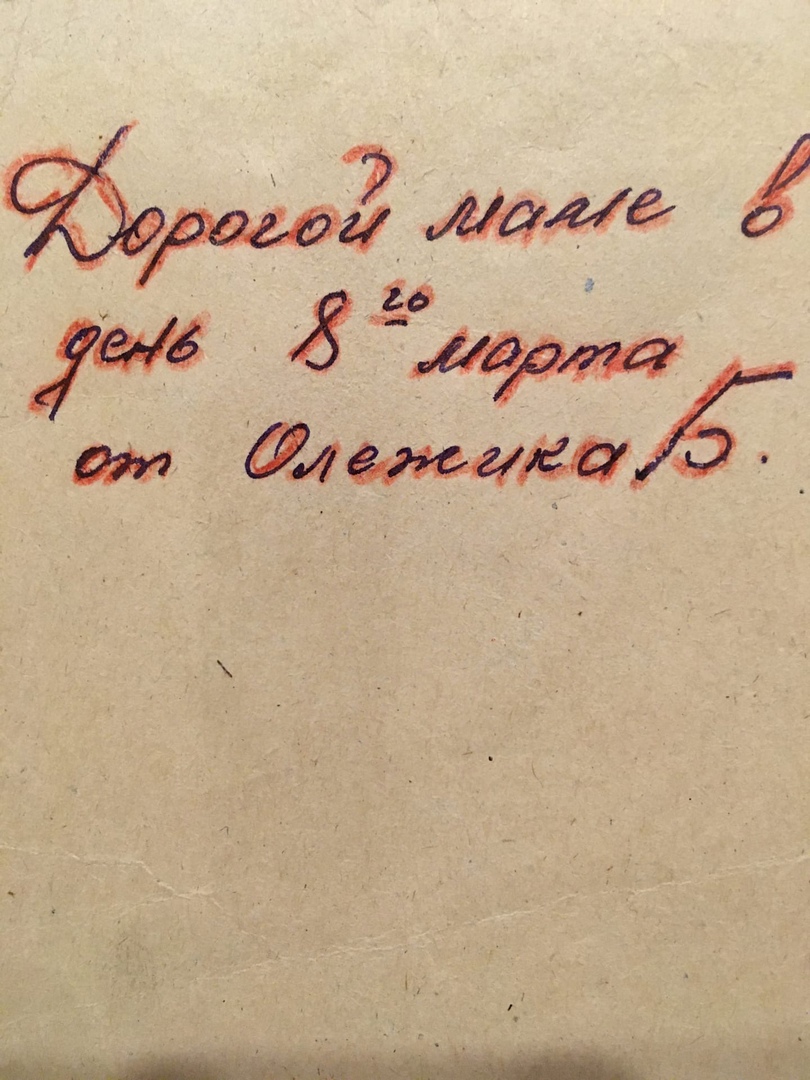 Дорогой маме в
день 8го марта
от Олежика Б.